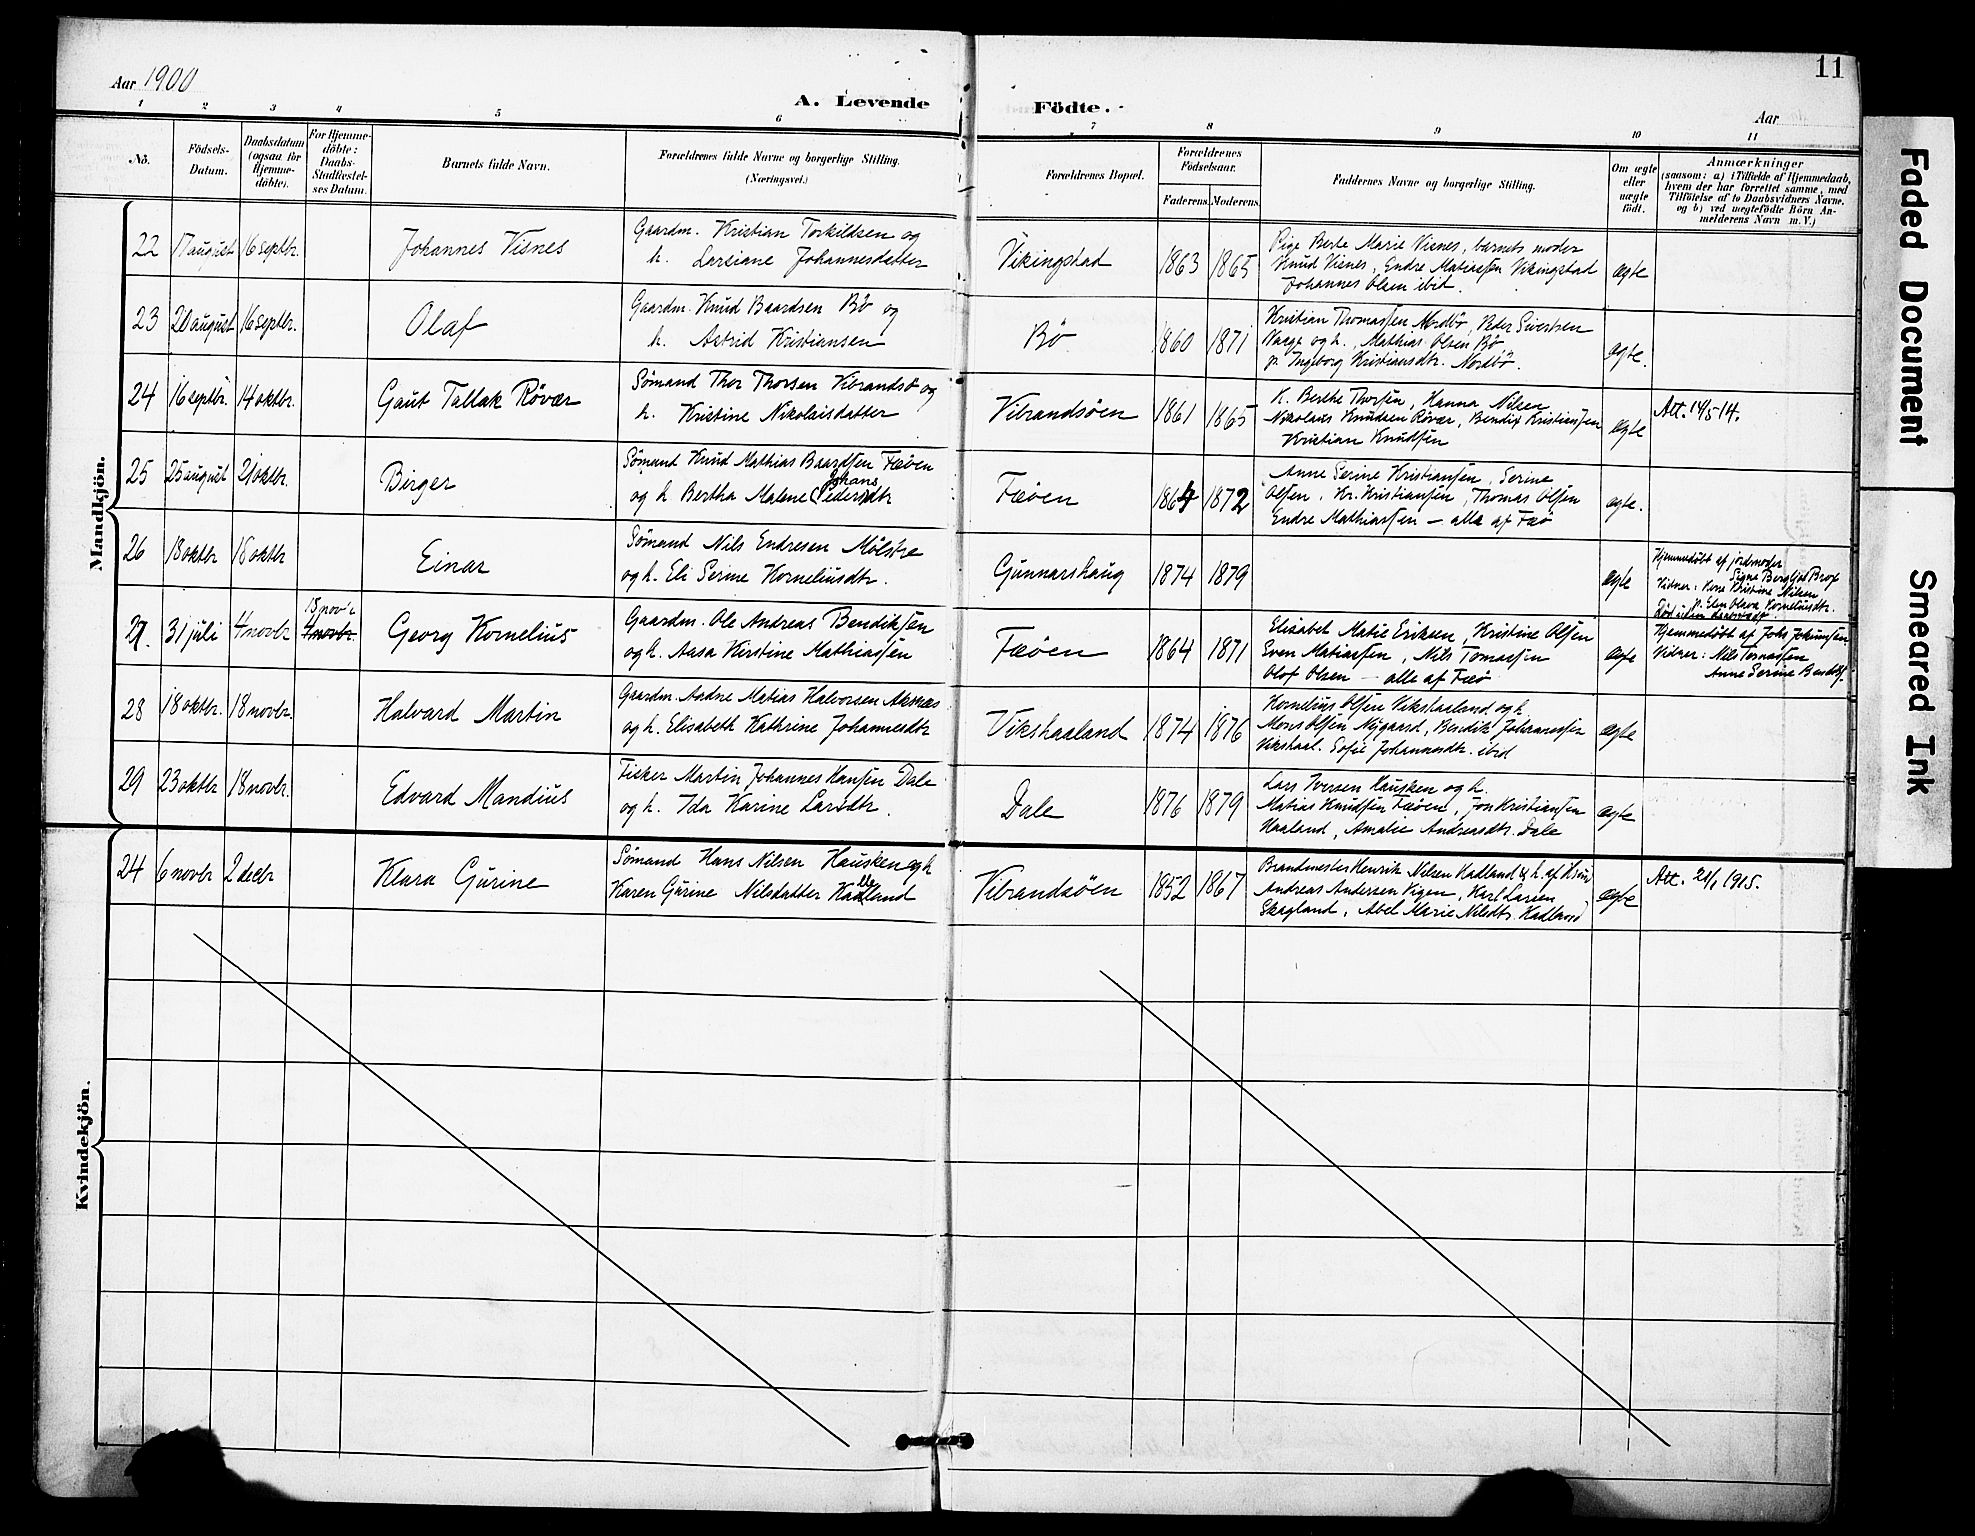 11
Aar 1900
A. Levende Födte.
Aar
1 2 3 4 5 6 7 8 9 10 11
No.
Födsels-
Datum.
Daabsdatum
(ogsaa for
Hjemme-
döbte).
For Hjemme-
döbte:
Daabs-
Stadfæstel-
ses Datum.
Barnets fulde Navn.
Forældrenes fulde Navne og borgerlige Stilling.
(Næringsvei.)
Forældrenes Bopæl.
Forældrenes
Födselsaar.
Faderens. Moderens.
Faddernes Navne og borgerlige Stilling.
Om ægte
eller
uægte
födt.
Anmærkninger
(saasom: a) i Tilfælde af Hjemmedaab,
hvem der har forrettet samme, med
Tilföielse af to Daabsvidners Navne,
og b) ved uægtefödte Börn An-
melderens Navn m. V.)
Mandkjön.
22 17 august 16 septbr. Johannes Visnes
Gaardm. Kristian Torkildsen og
h. Larsiane Johannesdatter
Vikingstad 1863 1865
Pige Berte Marie Visnes, barnets moder
Knud Visnes, Endre Matiassen Vikingstad
Johannes Olsen ibid.
ægte
23 20 august 16 septbr. Olaf
Gaardm. Knud Baardsen Bö og
h. Astrid Kristiansen
Bö 1860 1871
Kristian Thomassen Nordbö, Peder Sivertsen
Vaage og h., Mathias Olsen Bö
p. Ingeborg Kristiansdtr. Nordbö.
ægte.
24 16 septbr. 14 oktbr. Gaut Tallak Rövær
Sömand Thor Thorsen Vibrandsö og
h. Kristine Nikolaisdatter
Vibrandsöen 1861 1865
K. Berthe Thorsen, Hanna Nilsen
Nikolaus Knudsen Röver, Bendix Kristiansen
Kristian Knudsen
ægte
Att. 14/5 14.
25 25 august 21 oktbr. Birger
Sömand Knud Mathias Baardsen Fæöen
og h. Bertha Malene (Peders) Johansdtr
Fæöen 1864 1872
Anne Serine Kristiansen, Serine
Olsen, Kr. Kristiansen, Thomas Olsen
Endre Mathiassen — alle af Fæö
ægte.
26 18 oktbr 18 oktbr. Einar
Sömand Nils Endresen Mölstre
og h. Eli Serine Korneliusdtr.
Gunnarshaug 1874 1879
ægte
Hjemmedöbt af jordmoder
Signe Bergljot Brox
Vidner: Kone Kristine Nilsen
p. Elen Olava Korneliusdtr.
27. 31 juli 4 novbr 18 novbr 4 novbr. Georg Kornelius
Gaardm. Ole Andreas Bendiksen
og h. Aasa Kirstine Mathiassen
Fæöen 1864 1871
Elisabet Matie Eriksen, Kristine Olsen
Sven Matiassen, Nils Tomassen
Olof Olsen — alle af Fæö
ægte
Hjemmedöbt af Johs Jokumsen.
Vidner: Nils Tomassen
Anne Serine Bendiks.
28 18 oktbr. 18 novbr. Halvard Martin
Gaardm. Aadne Matias Halvorsen Aksnæs
og h. Elisabeth Kathrine Johannesdtr
Vikshaaland 1874 1876
Kornelius Olsen Vikshaaland og h.
Mons Olsen Nygaard, Bendik Johannessen
Vikshaal. Sofie Johannesdtr. ibid
ægte
29 23 oktbr 18 novbr. Edvard Mandius
Fisker Martin Johannes Hansen Dale
og h. Ida Karine Larsdtr.
Dale 1876 1879
Lars Iversen Hausken og h.
Matias Knudsen Fæöen, Jon Kristiansen
Haaland, Amalie Andreasdtr. Dale
ægte
Kvindekjön.
24 6 novbr 2 decbr Klara Gurine
Sömand Hans Nilsen Hausken og h
Karen Gurine Nilsdatter Kadland
Vibrandsöen 1852 1867
Brandmester Henrik Nilsen Kadland & h. af H.sund
Andreas Andersen Vigen, Karl Larsen
Skagland, Abel Marie Nilsdtr. Kadland
ægte
Att. 21/1 1915.
Faded Document
Smeared Ink